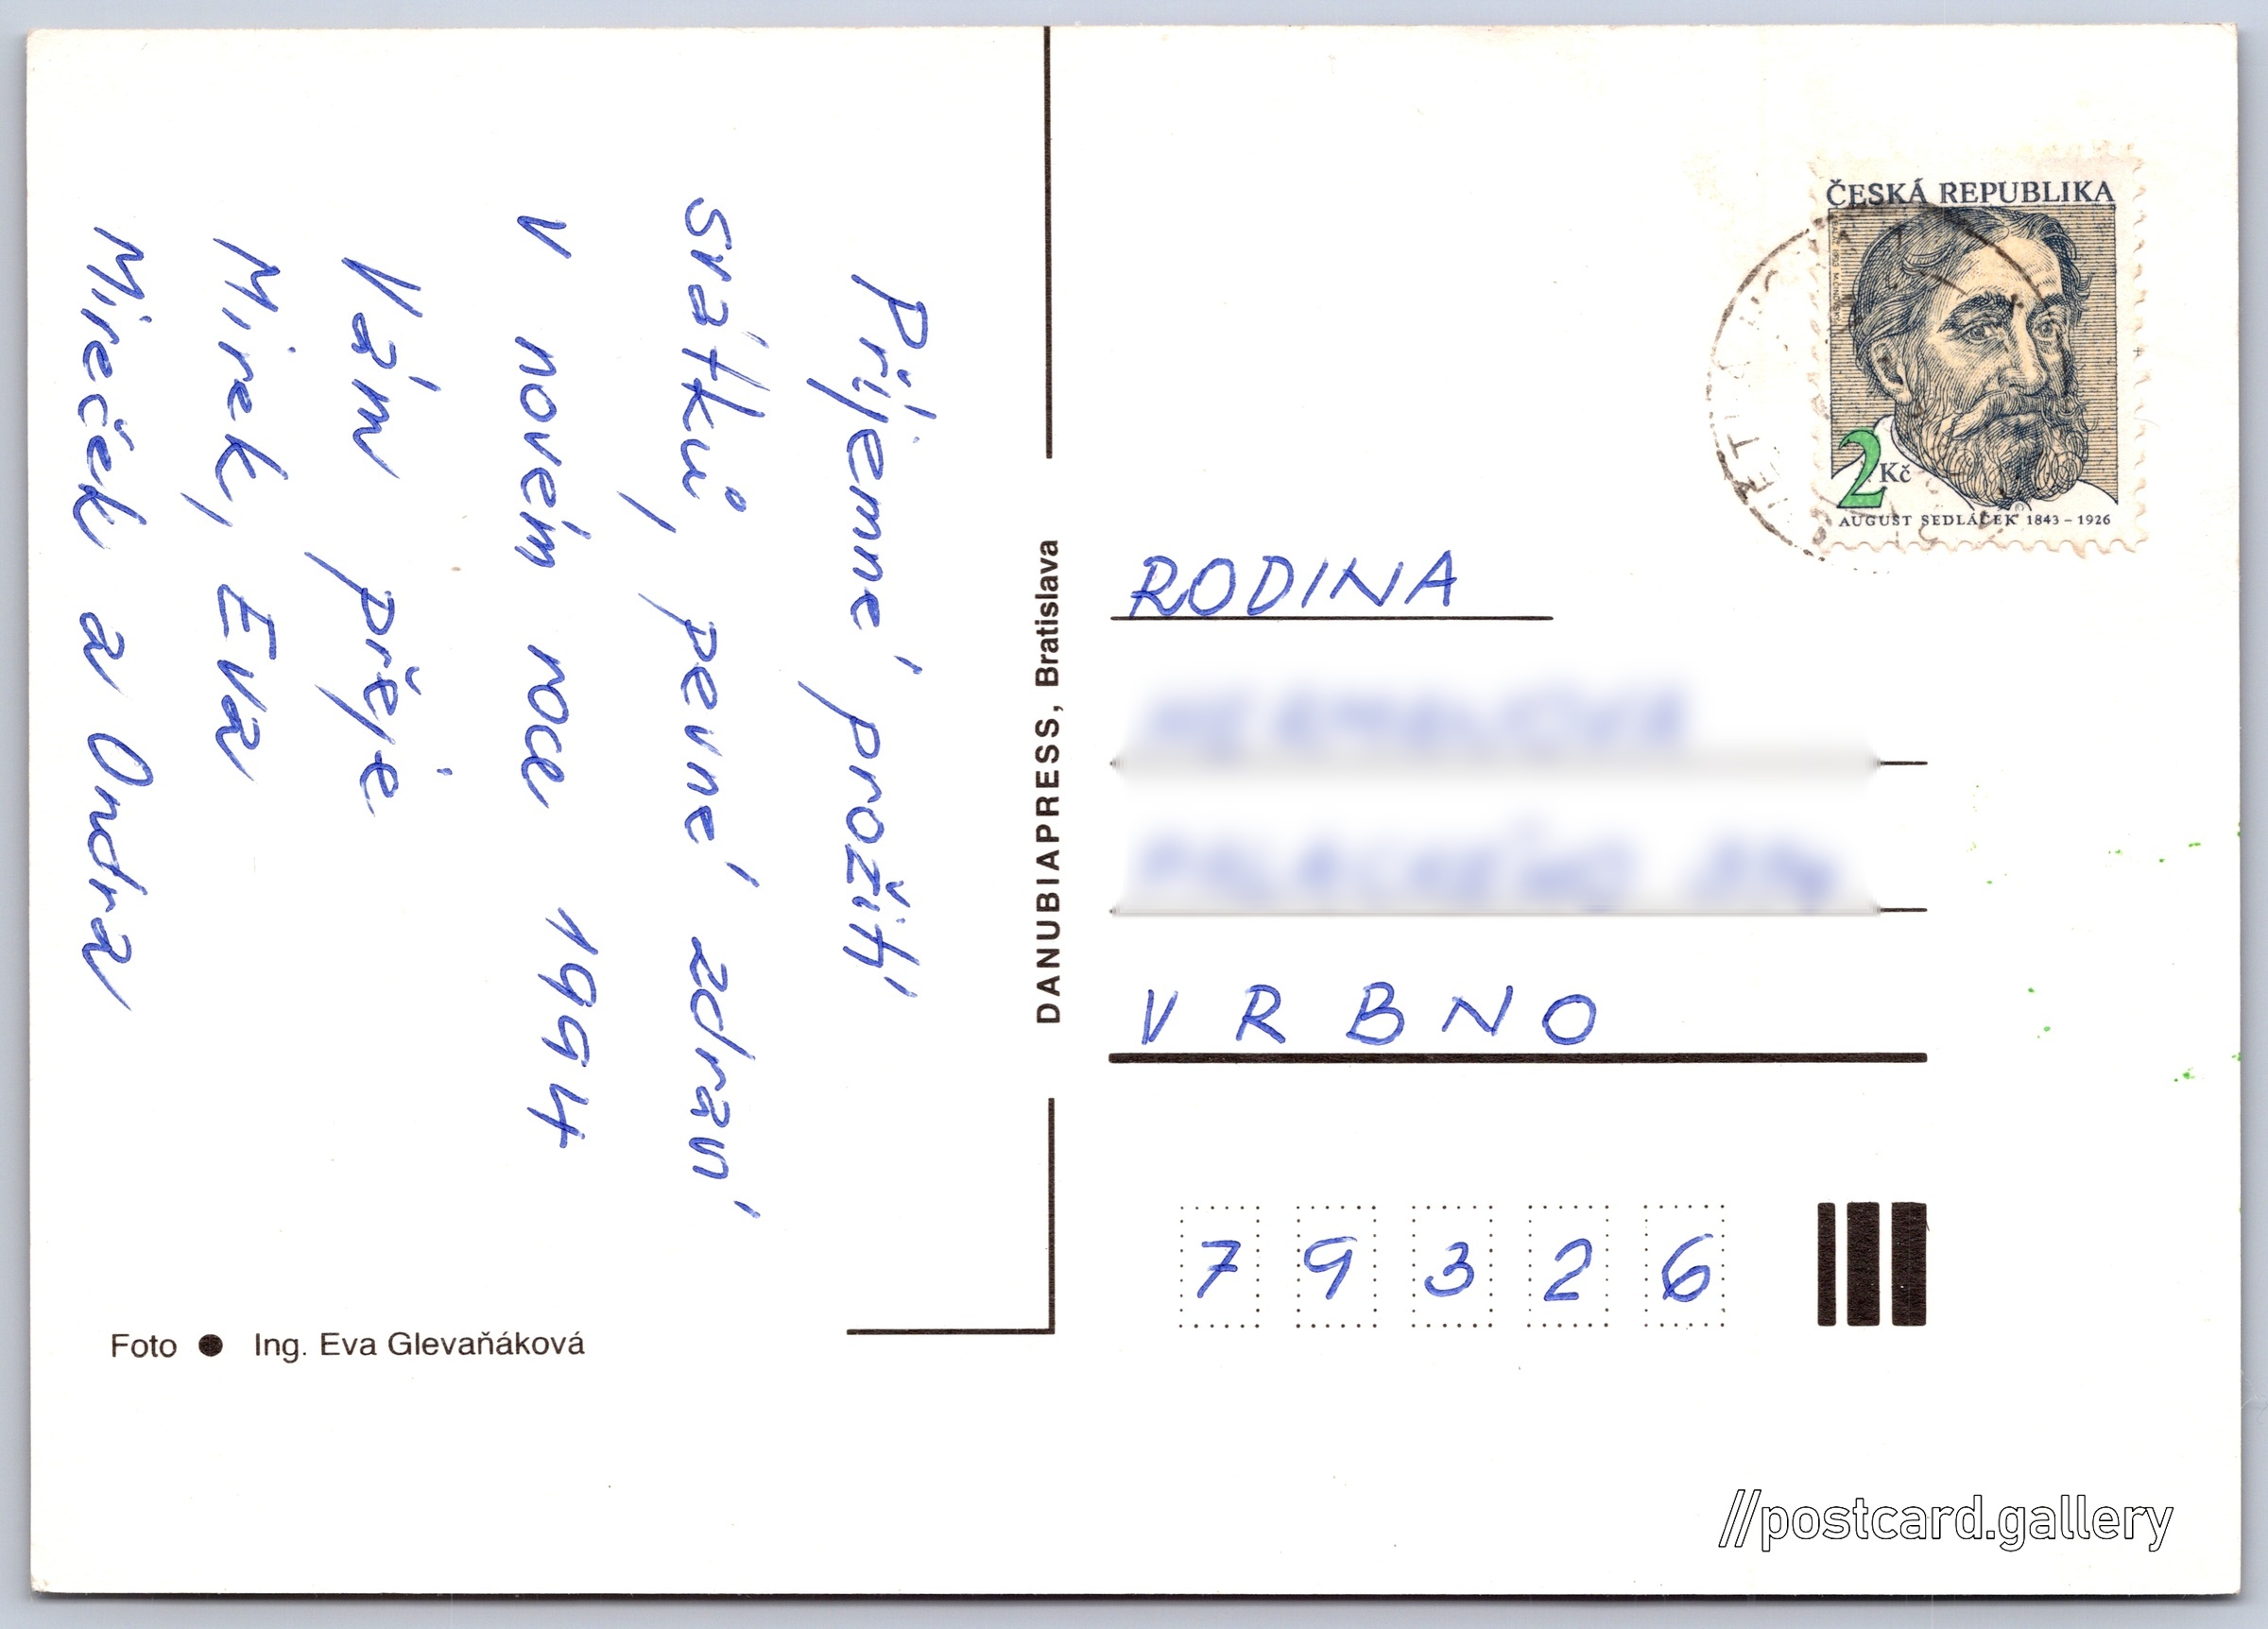 Příjemné prožití
svátků, pevné zdraví
v novém roce 1994
Vám přeje
Mirek, Eva
Mireček a Ondra
Foto ● Ing. Eva Glevaňáková
DANUBIAPRESS, Bratislava
ČESKÁ REPUBLIKA
2 Kč
AUGUST SEDLÁČEK 1843 – 1926
RODINA
VRBNO
79326
//postcard.gallery